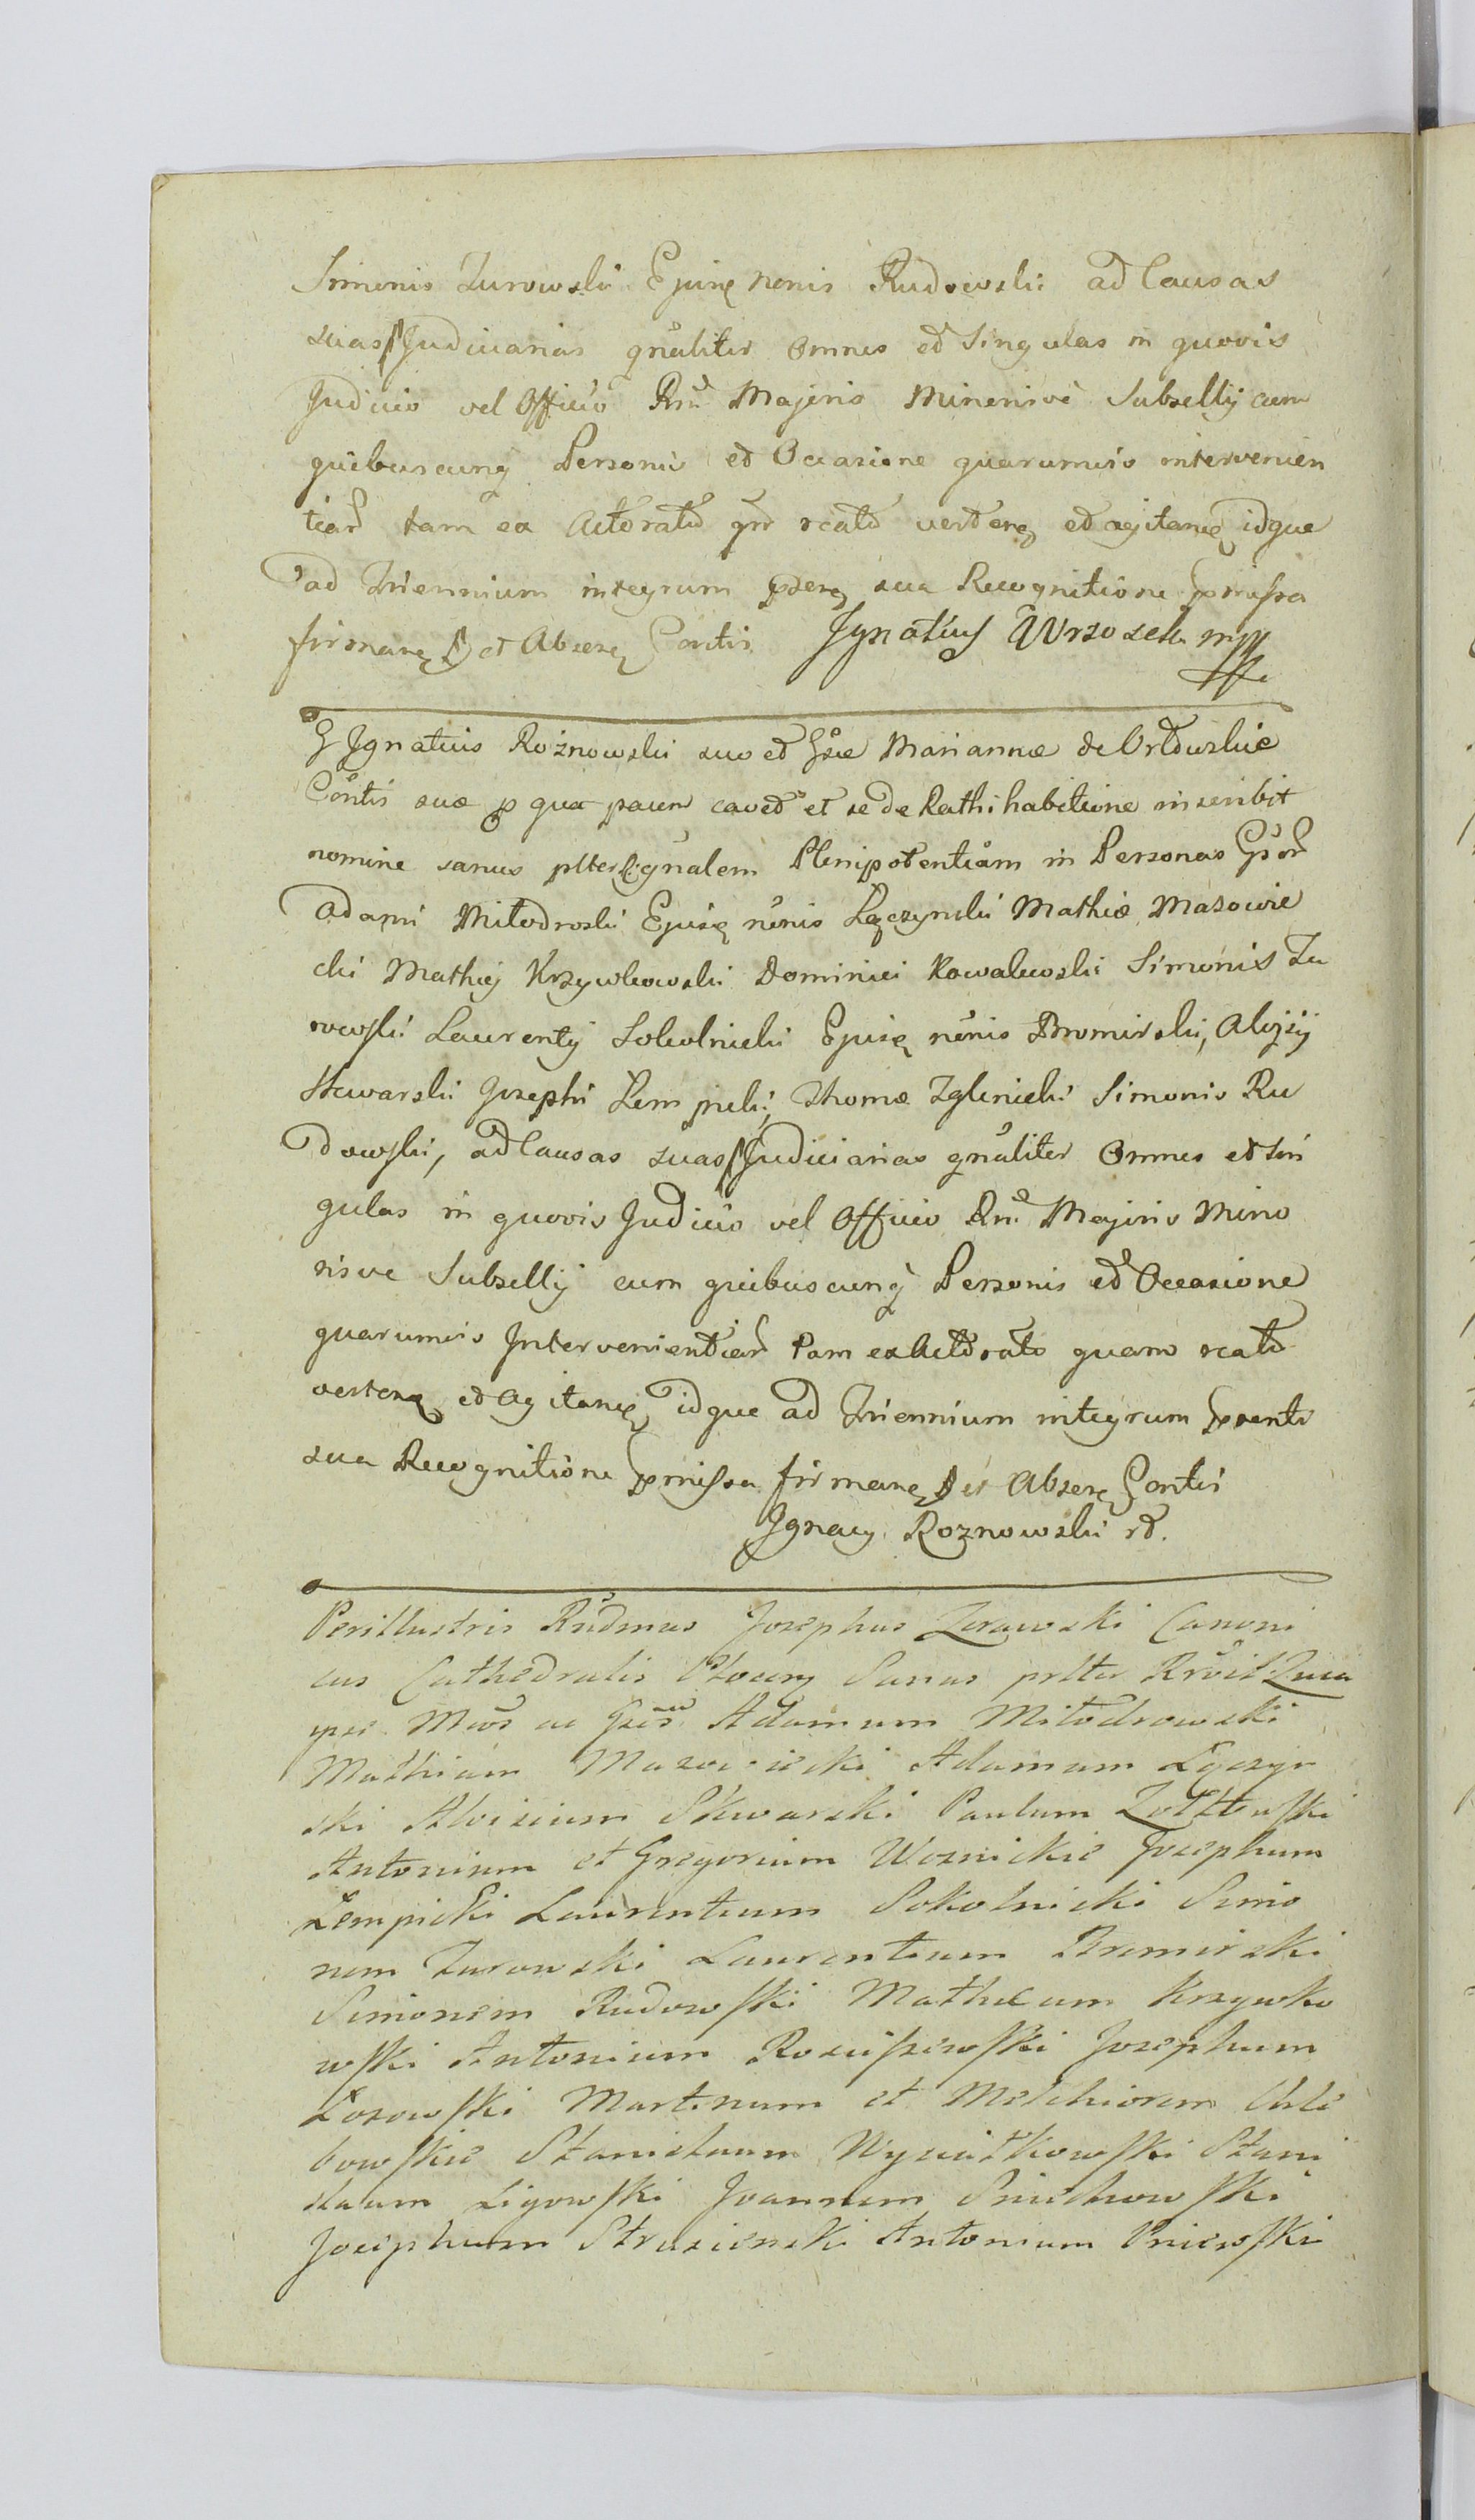 Simonis Zurowski Ejusq̃ nõnis Rudowski ad Causas
suas Judiciarias gñaliter Omnes et Singulas in quovis
Judicio vel Officio Rñi Majoris Minorisve Subsellij cum
quibuscunq̃ Personis et Occasione quarumvis intervenien
tiar̃ tam ex Actoratu qm̃ reatu verteñ et agitañ idque
ad Triennium integrum p̃señ sua Recognitione p̃missa
firmañ et Abseñ Contis Ignatius Wrzosek mpp
G Ignatius Roznowski suo et Gsæ Mariannæ de Ortowskie
Cõntis suæ p qua pacem cavet et se de Rathihabitione inscribit
nomine sanus pltes gñalem Plenipotentiam in Personas Gsor̃
Adami Miłodroski Ejusq̃ nõnis Łączynski Mathiæ Mazowie
cki Mathej Krzywkowski Dominici Kowalewski Simonis Zu
rowski Laurentij Sokolnicki Ejusq̃ nõnis Bromirski, Alojzij
Skwarski Josephi Łempicki, Thomæ Zglinicki Simonis Ru
dowski, ad Causas suas Judiciarias gñaliter Omnes et Sin
gulas in quovis Judicio vel Officio Rñi Majoris Mino
risve Subsellij cum quibuscunq̃ Personis et Occasione
quarumvis Intervenientiar̃ tam ex Actoratu quam reatu
verteñ et Agitañ idque ad Triennium integrum p̃senti
sua Recognitione p̃missa firmañ et Abseñ Contis
Ignacy Roznowski rd.
Perillustris Rñdmus Josephus Zerawski Canoni
cus Cathedralis Plocen̄ Sanus pltr Rr̃vit Qua
per Mcos ac Gsos Adamum Miłodrowski
Mathiam Mazowiecki Adamum Łączyn
ski Aloisium Skwarski Paulum Zołtowski
Antonium et Gregorium Woznickie Josephum
Łempicki Laurentium Sokolnicki Simo
nem Zurowski Laurentium Bromirski
Simonem Rudowski Matheum Krzywko
wski Antonium Rosciszewski Josephum
Łozowski Martinum et Melchiorem Chle
bowskie Stanislaum Wyziątkowski Stani
slaum Ligowski Joannem Sniechowski
Josephum Struzienski Antonium Pniewski